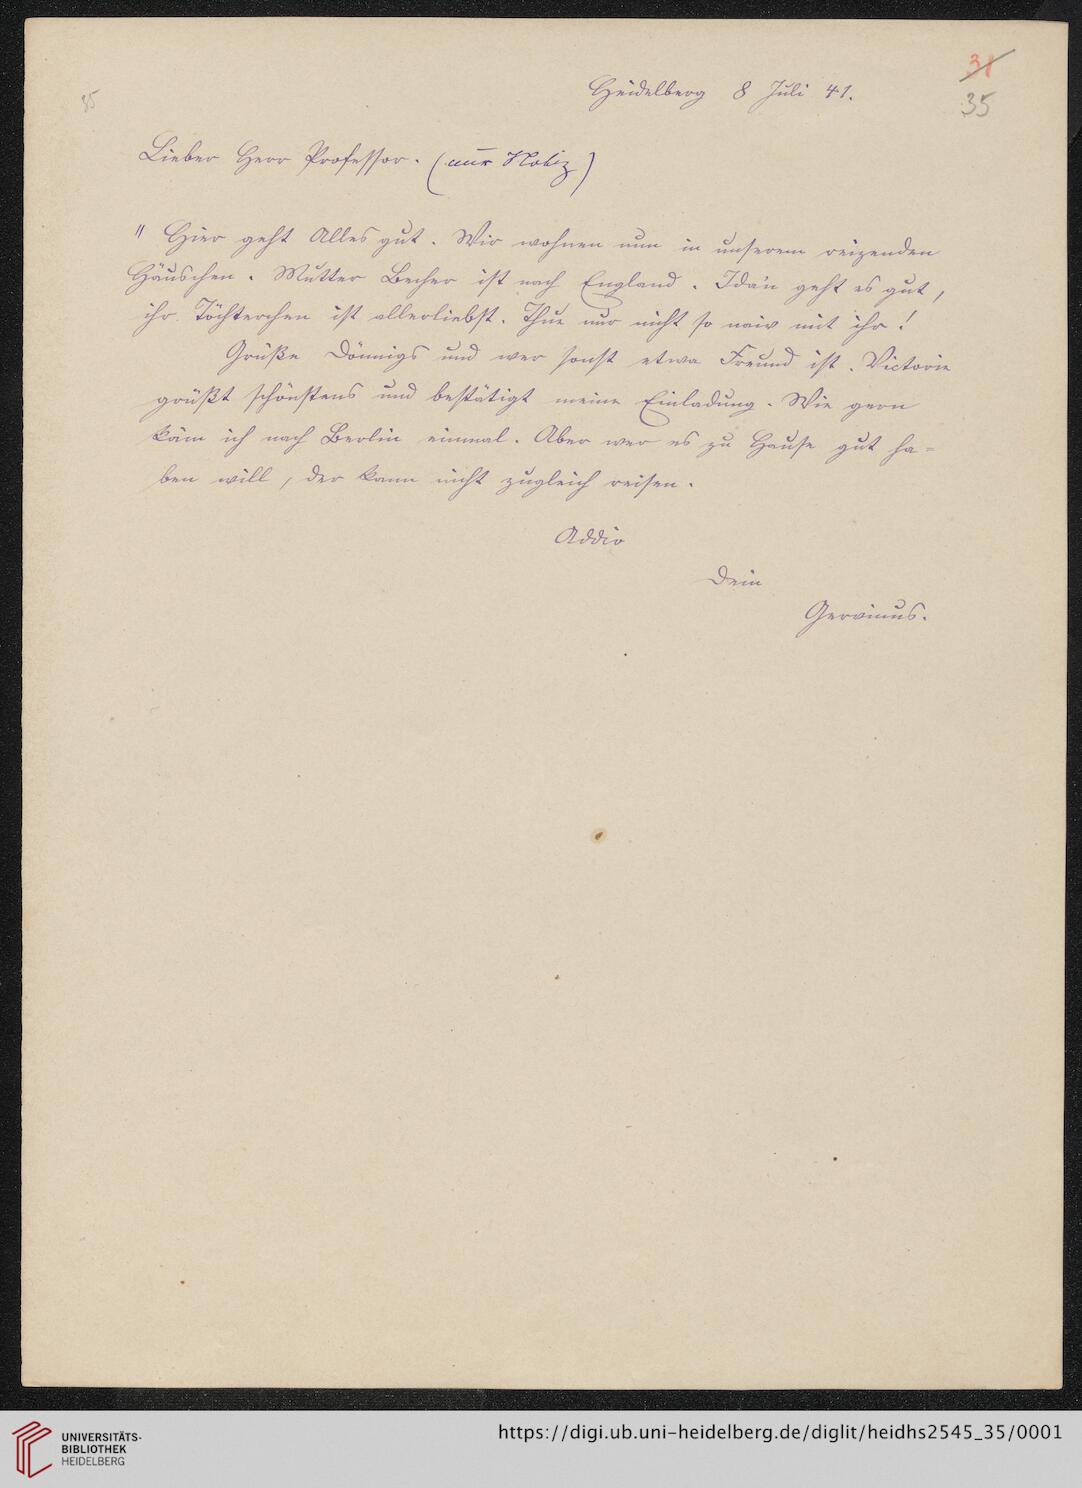 31
35
35
Heidelberg 8 Juli 41.
Lieber Herr Professor. (nur Notiz)
" Hier geht Alles gut. Wir wohnen nun in unserem reizenden
Häuschen. Mutter Becher ist nach England. Ida'n geht es gut,
ihr Töchterchen ist allerliebst. Thue nur nicht so naiv mit ihr!
Grüße Dönnigs und wer sonst etwa Freund ist. Victorie
grüßt schönstens und bestätigt meine Einladung. Wie gern
käm ich nach Berlin einmal. Aber wer es zu Hause gut ha-
ben will, der kann nicht zugleich reisen.
Addio
Dein
Gervinus.
UNIVERSITÄTS-
BIBLIOTHEK
HEIDELBERG
https://digi.ub.uni-heidelberg.de/diglit/heidhs2545_35/0001